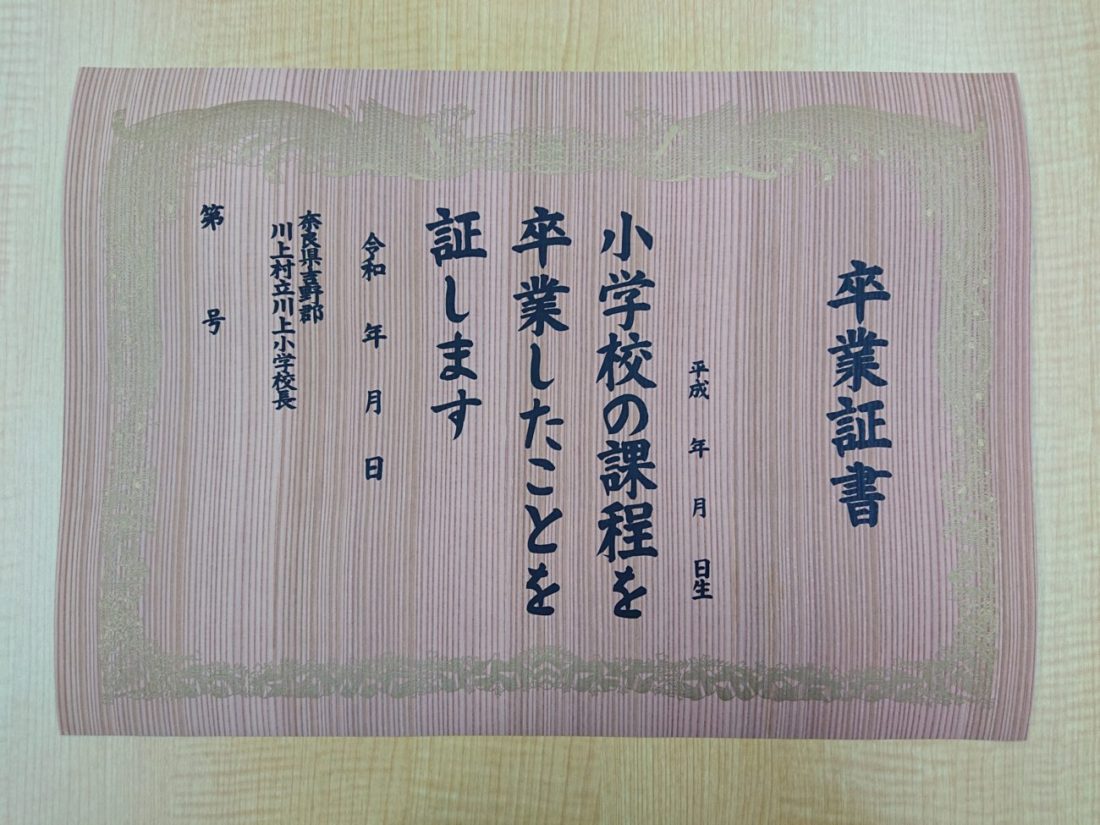 卒業証書
平成 年 月 日生
小学校の課程を
卒業したことを
証します
令和 年 月 日
奈良県吉野郡
川上村立川上小学校長
第 号